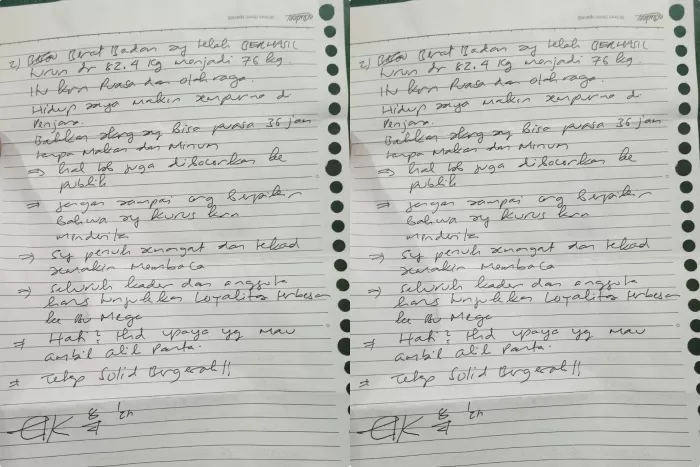 2) Berat Badan sy telah BERHASIL
turun dr 82.4 Kg menjadi 76 kg.
Itu krn Puasa dan olahraga.
Hidup saya makin sempurna di
Penjara.
Bahkan skrg sy Bisa puasa 36 jam
tanpa Makan dan Minum
⇒ hal tsb juga dibocorkan ke
publik
⇒ jangan sampai org berpikir
Bahwa sy kurus krn
menderita
⇒ Sy penuh semangat dan tekad
semakin Membaca
⇒ Seluruh kader dan anggota
harus tunjukkan Loyalitas terbesar
ke Bu Mega
⇒ Hati2 thd upaya yg mau
ambil alih Partai.
⇒ Tetap Solid Bergerak!!
2) Berat Badan sy telah BERHASIL
turun dr 82.4 Kg menjadi 76 kg.
Itu krn Puasa dan olahraga.
Hidup saya makin sempurna di
Penjara.
Bahkan skrg sy Bisa puasa 36 jam
tanpa Makan dan Minum
⇒ hal tsb juga dibocorkan ke
publik
⇒ jangan sampai org berpikir
Bahwa sy kurus krn
menderita
⇒ Sy penuh semangat dan tekad
semakin Membaca
⇒ Seluruh kader dan anggota
harus tunjukkan Loyalitas terbesar
ke Bu Mega
⇒ Hati2 thd upaya yg mau
ambil alih Partai.
⇒ Tetap Solid Bergerak!!